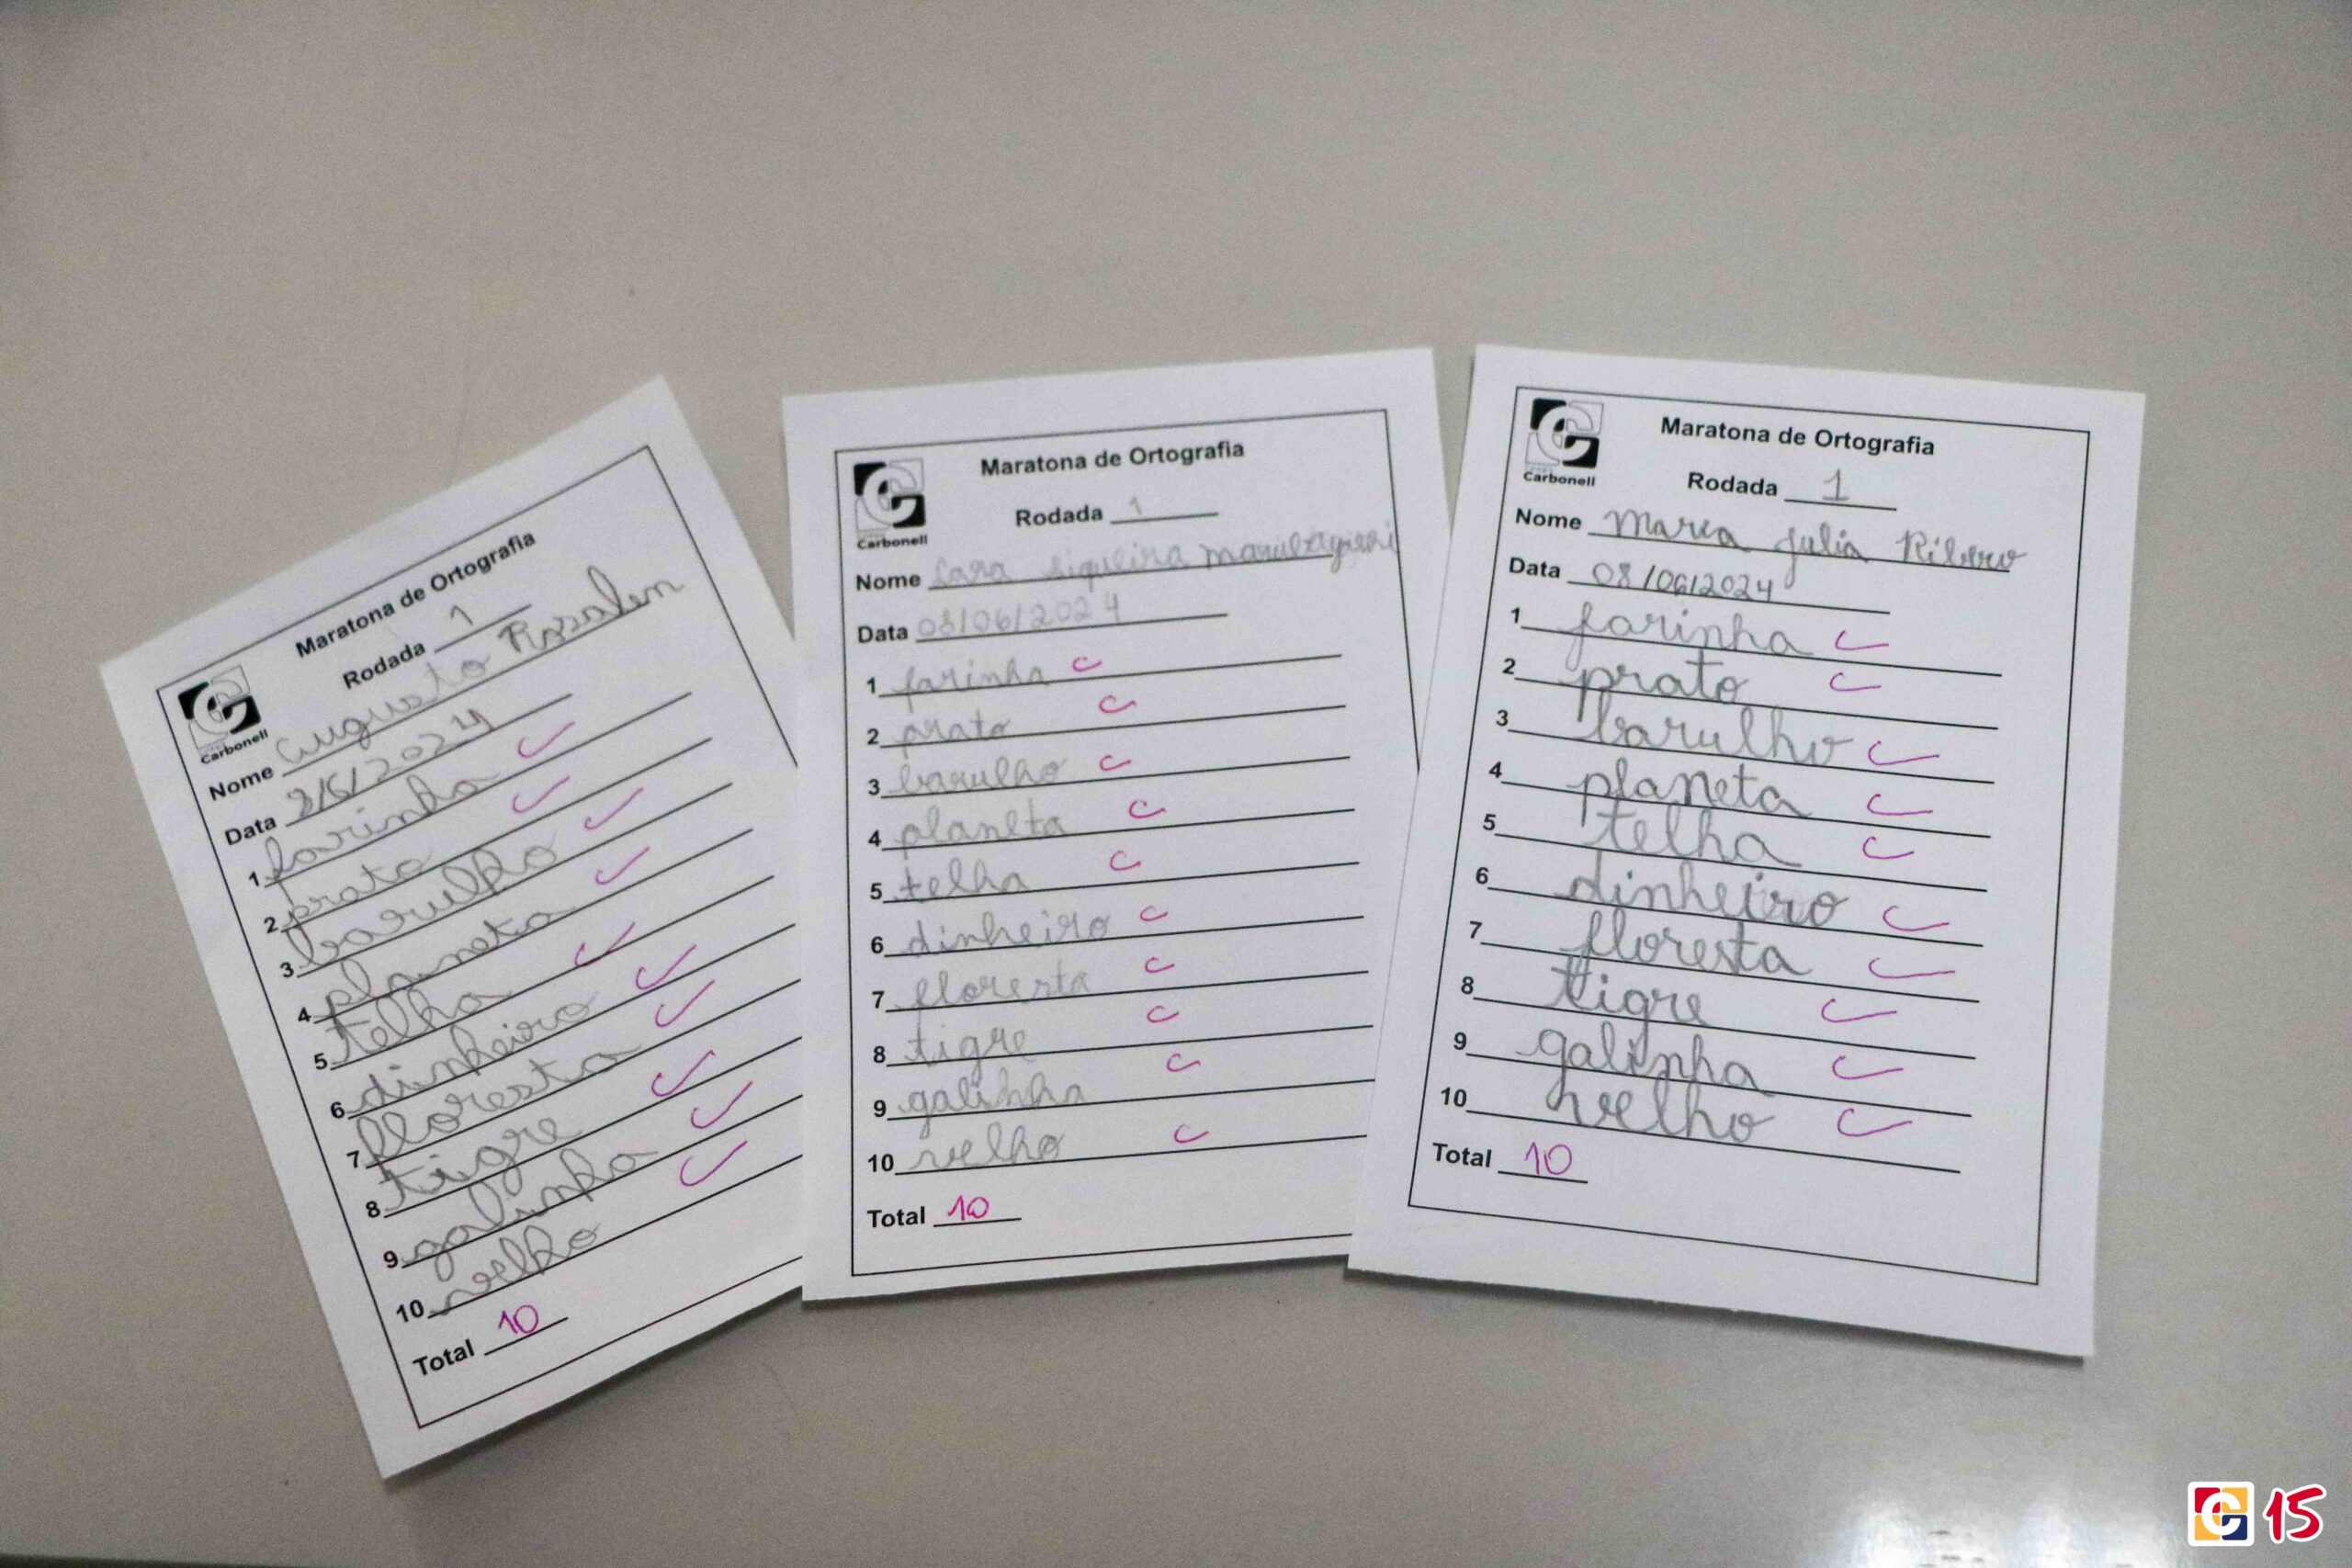 Maratona de Ortografia
Rodada 1
Carbonell
Nome Augusto
Data 8/6/2024
1 farinha
2 prato
3 barulho
4 planeta
5 telha
6 dinheiro
7 floresta
8 tigre
9 galinha
10 velho
Total 10
Maratona de Ortografia
Rodada 1
Carbonell
Nome Lara Siqueira
Data 08/06/2024
1 farinha
2 prato
3 barulho
4 planeta
5 telha
6 dinheiro
7 floresta
8 tigre
9 galinha
10 velho
Total 10
Maratona de Ortografia
Rodada 1
Carbonell
Nome Maria Julia Ribeiro
Data 08/06/2024
1 farinha
2 prato
3 barulho
4 planeta
5 telha
6 dinheiro
7 floresta
8 tigre
9 galinha
10 velho
Total 10
15